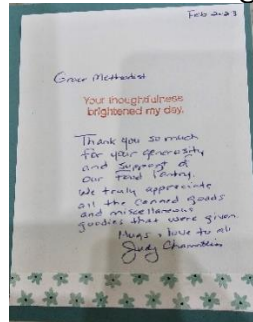 Feb 2023
Grace Methodist
Your thoughtfulness
brightened my day.
Thank you so much
for your generosity
and support of
our Food Pantry.
We truly appreciate
all the canned goods
and miscellaneous
goodies that were given.
Hugs & love to all
Judy